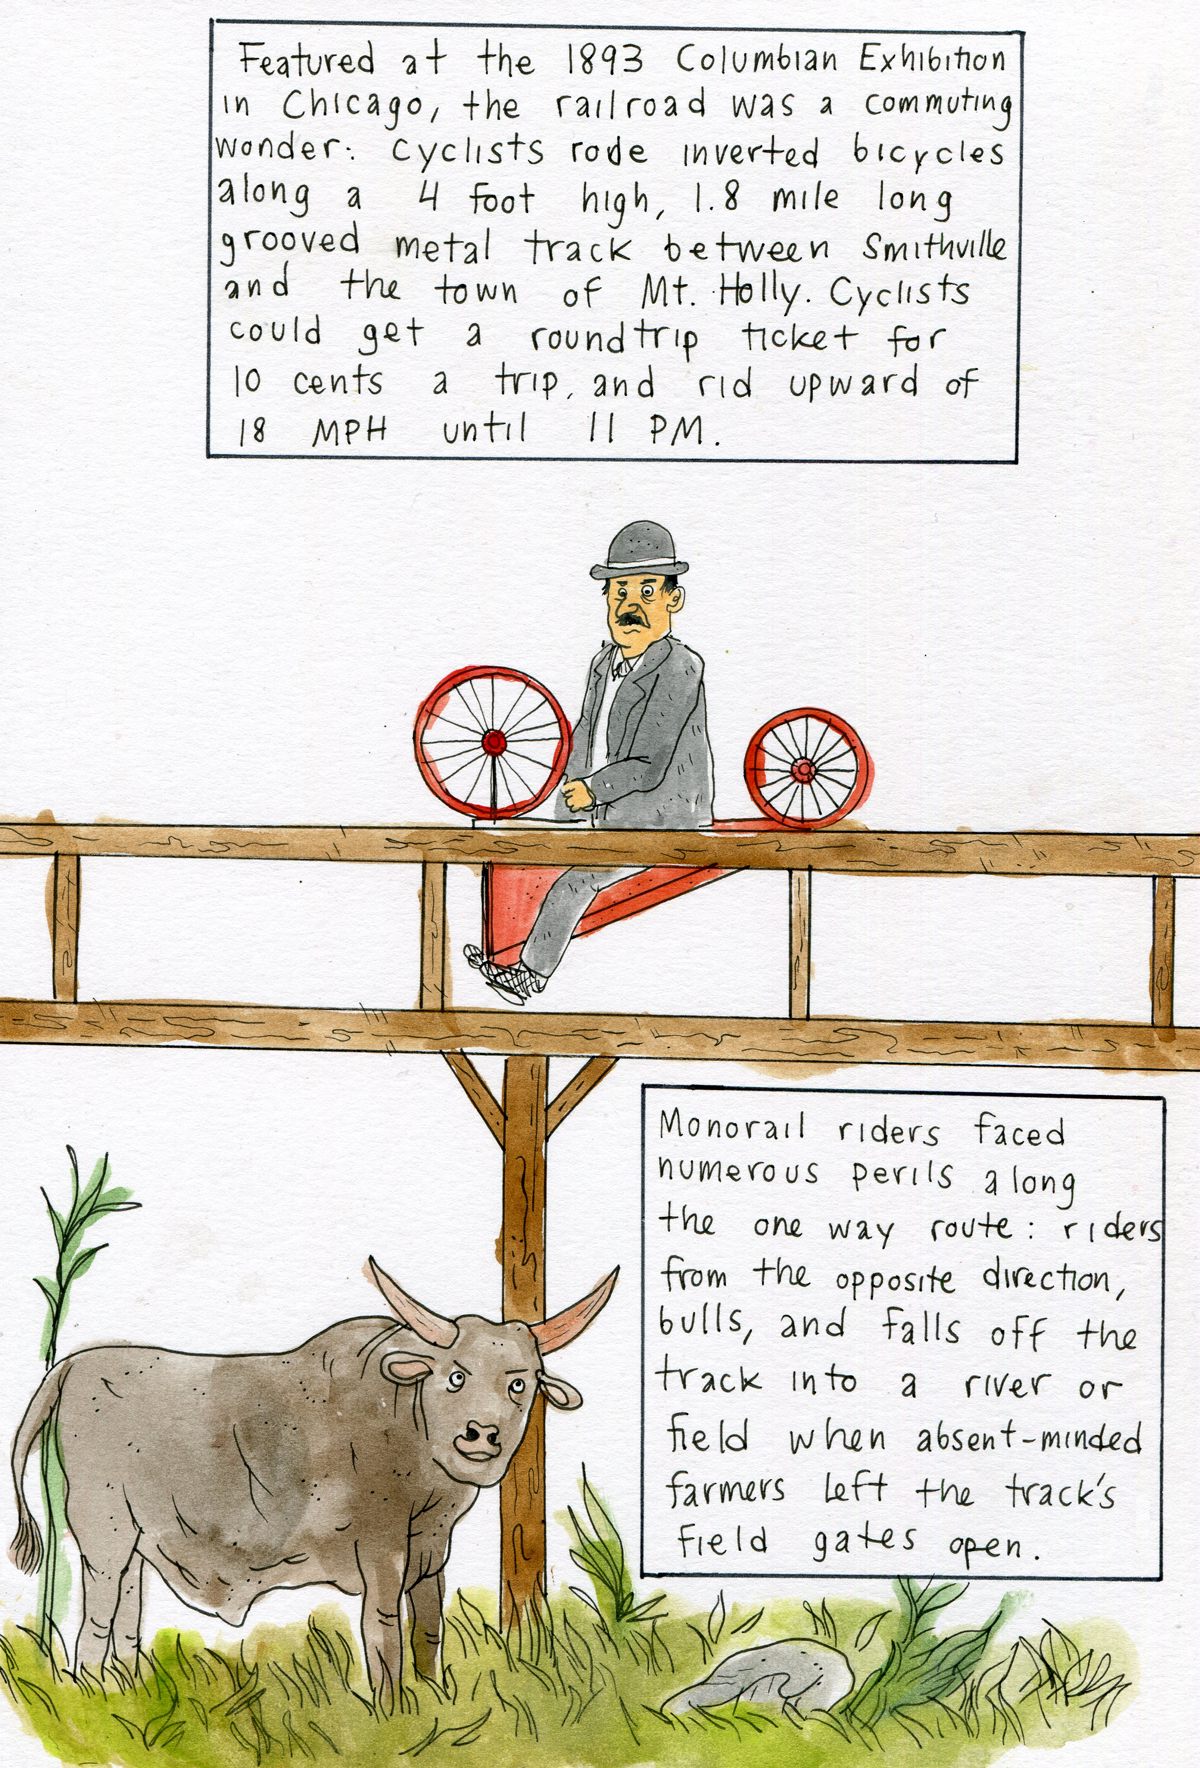 Featured at the 1893 Columbian Exhibition
in Chicago, the railroad was a commuting
wonder: cyclists rode inverted bicycles
along a 4 foot high, 1.8 mile long
grooved metal track between Smithville
and the town of Mt. Holly. Cyclists
could get a roundtrip ticket for
10 cents a trip, and rid upward of
18 MPH until 11 PM.
Monorail riders faced
numerous perils along
the one way route: riders
from the opposite direction,
bulls, and falls off the
track into a river or
field when absent-minded
farmers left the track's
field gates open.